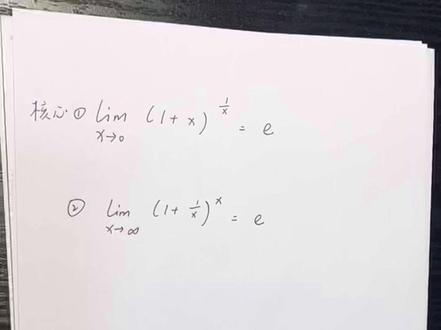 核心① lim x→0 (1+x)^(1/x) = e
② lim x→∞ (1+1/x)^x = e